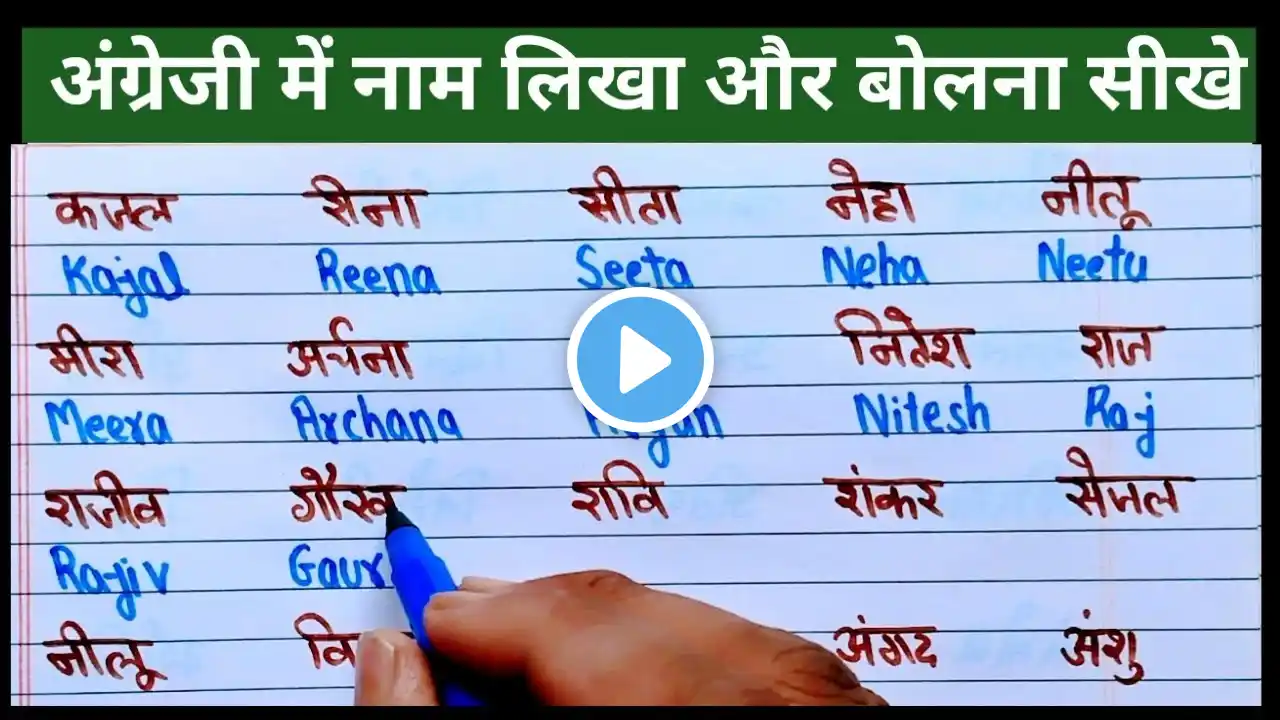 अंग्रेजी में नाम लिखा और बोलना सीखे
कजल रीना सीता नेहा नीतू
Kajal Reena Seeta Neha Neetu
मीरा अर्चना नितेश राज
Meera Archana Nitesh Raj
राजीव गौरव रवि शंकर सेजल
Rajiv Gaur
नीलू वि अंगद अंशु